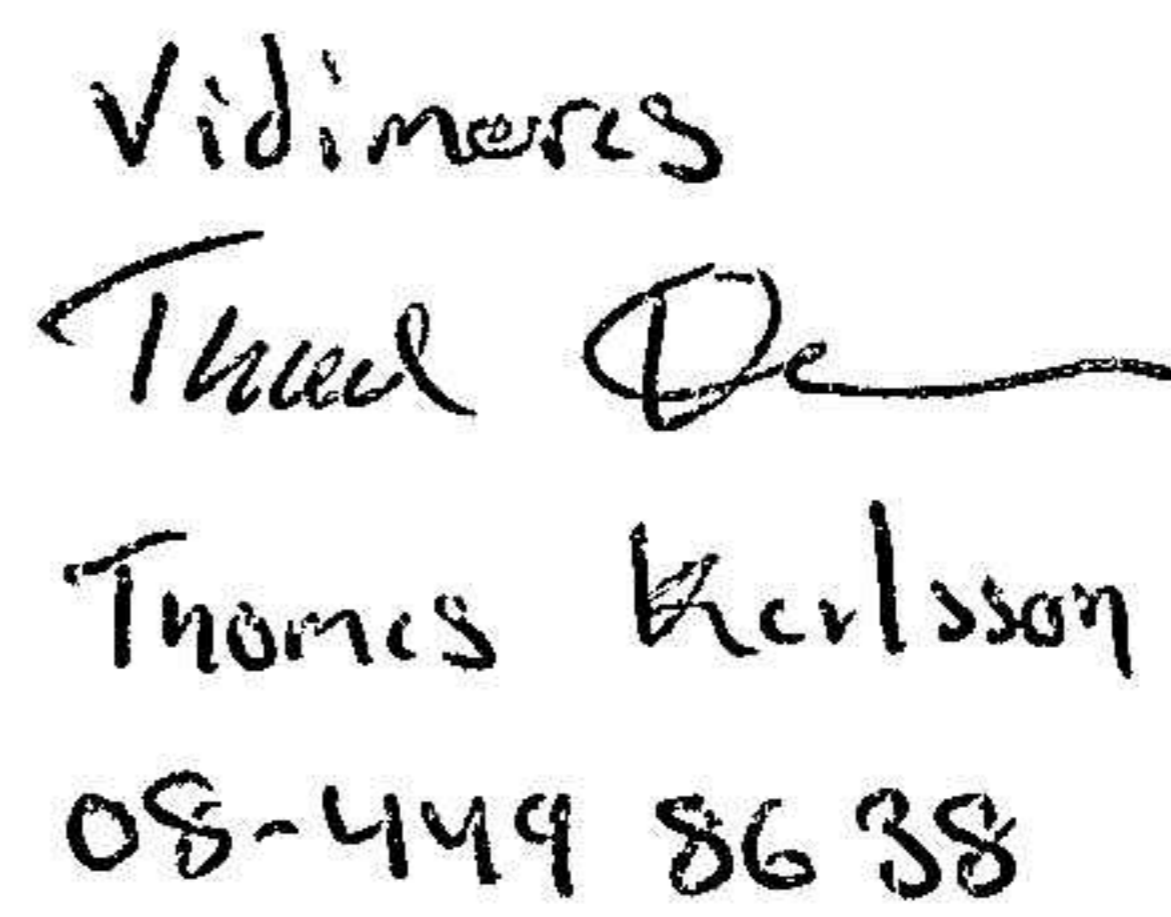 Vidimeras
Thomas Karlsson
08-449 86 38